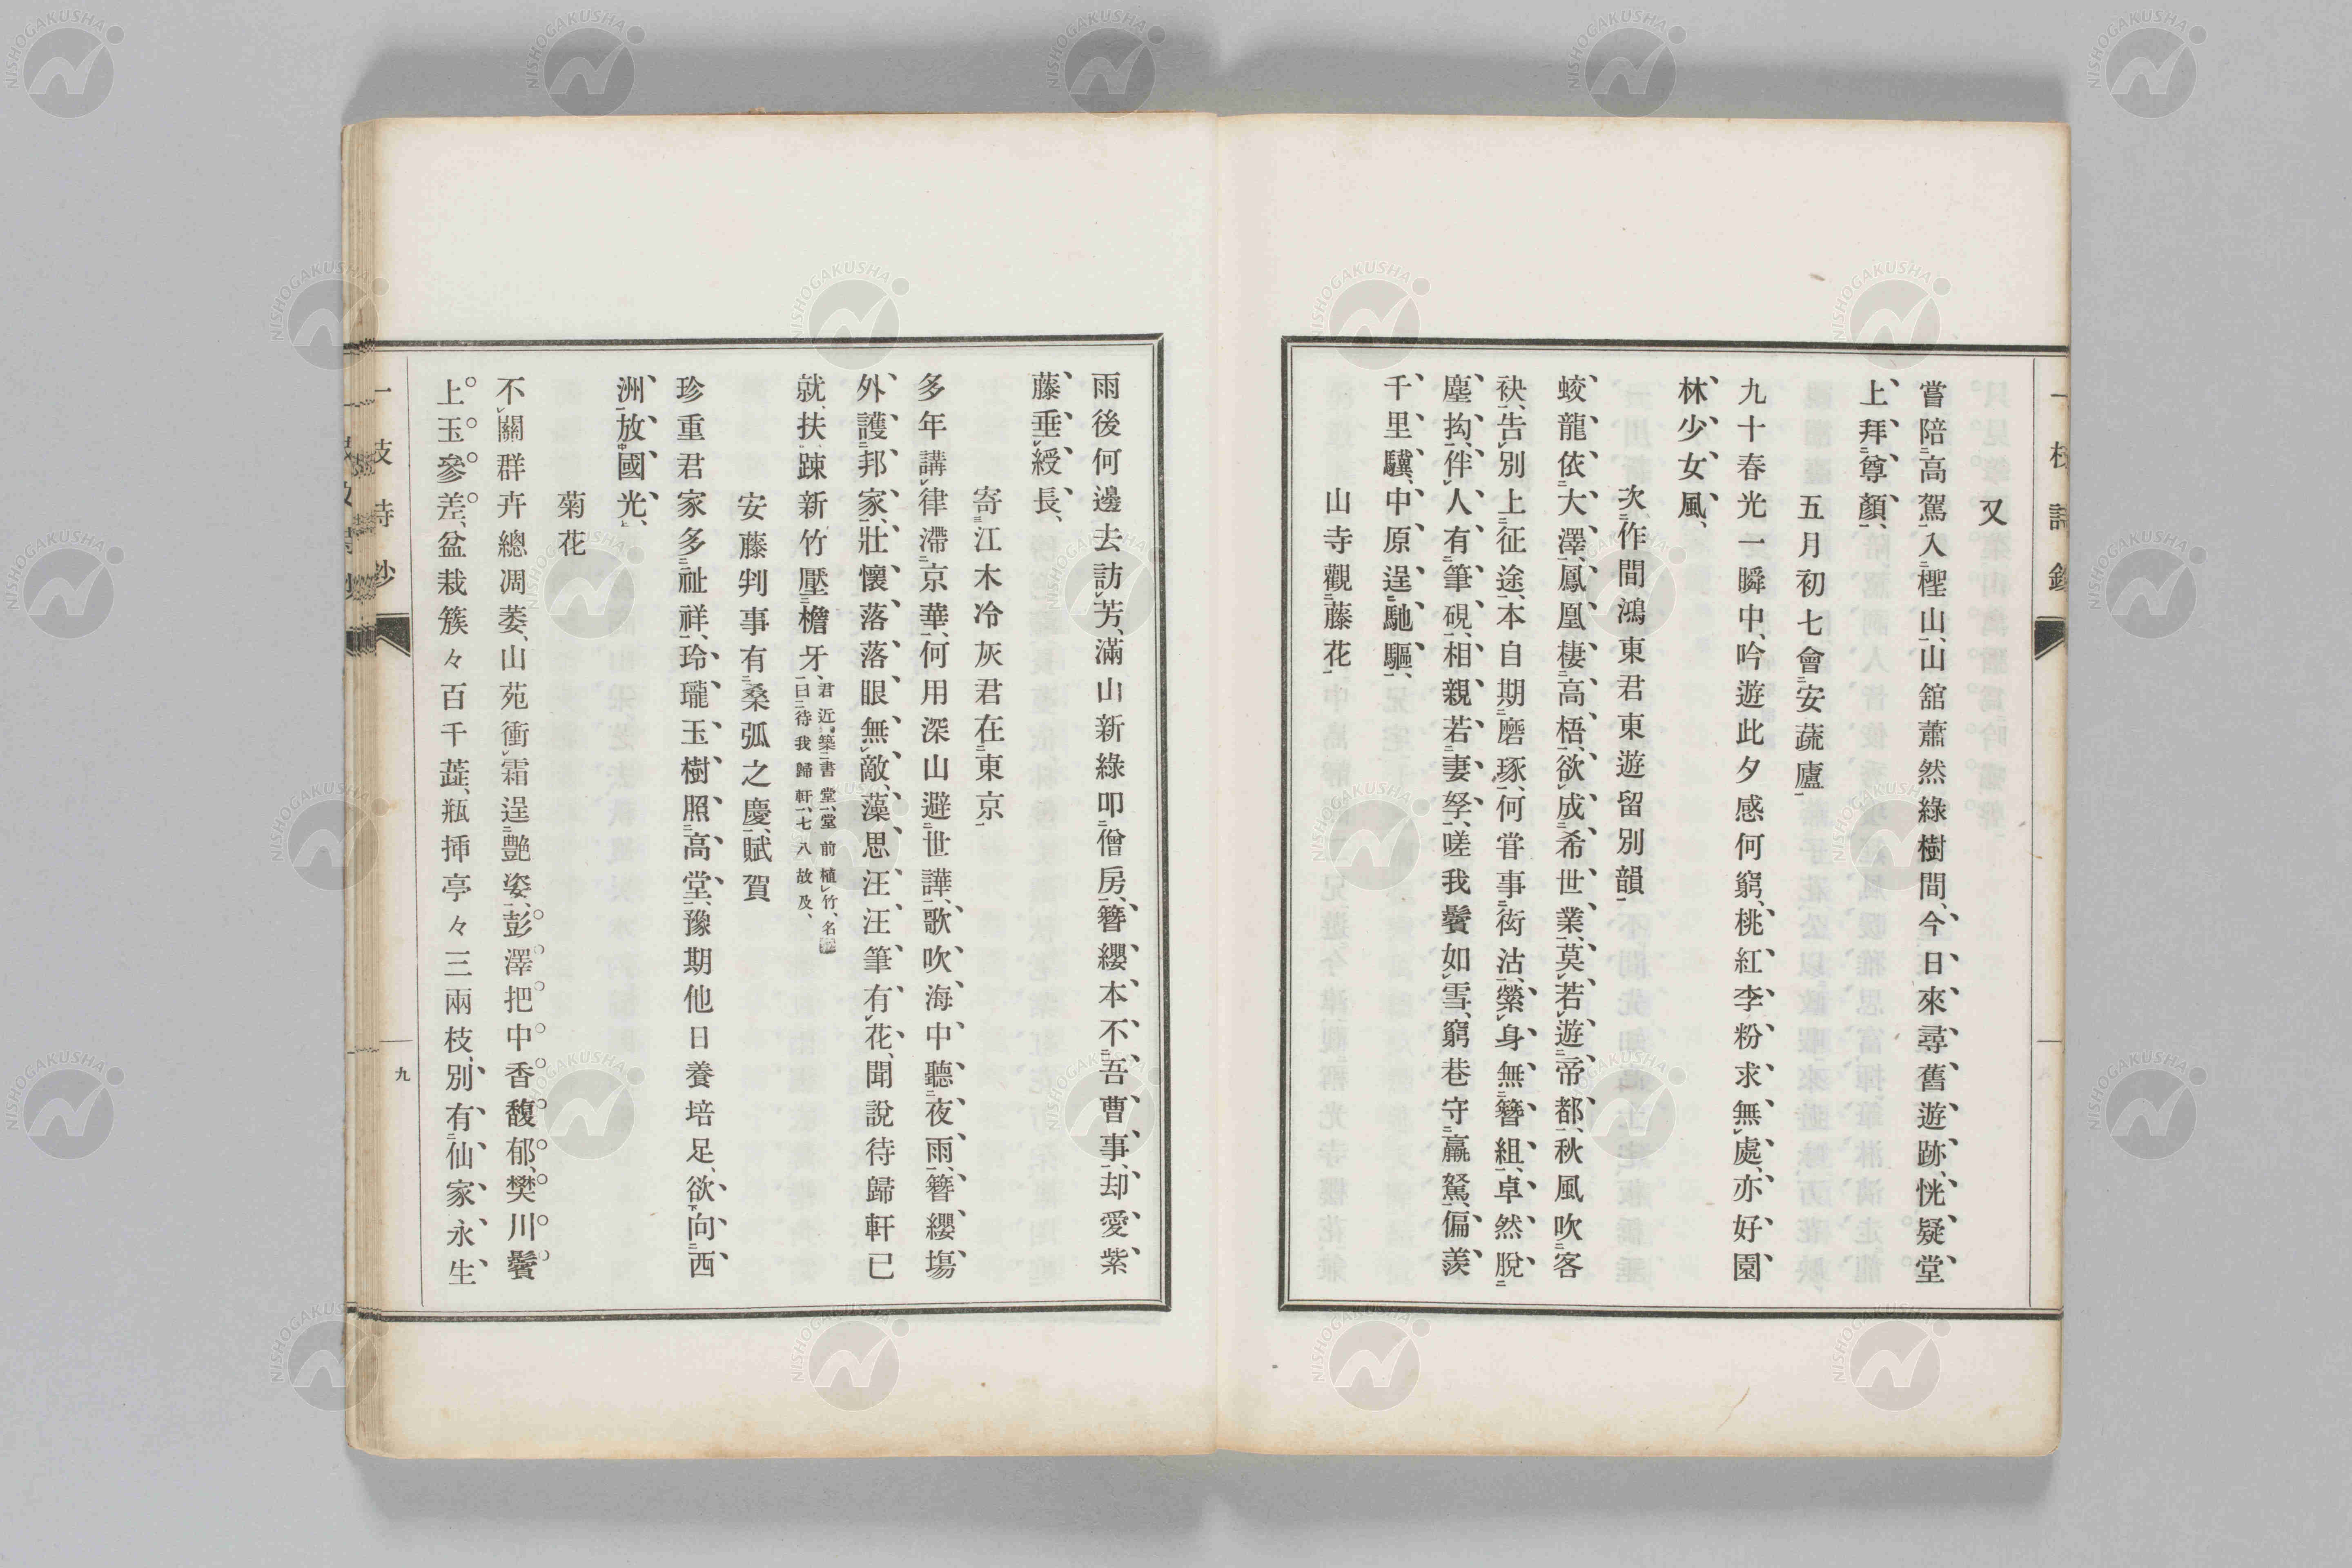 又
嘗陪高駕入樫山、山舘蕭然綠樹間、今日來尋舊遊跡、恍疑堂
上拜尊顏、
五月初七會安蔬廬
九十春光一瞬中、吟遊此夕感何窮、桃紅李粉求無處、亦好園
林少女風、
次作間鴻東君東遊留別韻
蛟龍依大澤、鳳凰棲高梧、欲成希世業、莫若遊帝都、秋風吹客
袂、告別上征途、本自期磨琢、何甞事衒沽、縈身無簪組、卓然脫
塵拘、伴人有筆硯、相親若妻孥、嗟我鬢如雪、窮巷守羸駑、偏羨
千里驥、中原逞馳驅、
山寺觀藤花
雨後何邊去訪芳、滿山新綠叩僧房、簪纓本不吾曹事、却愛紫
藤垂綬長、
寄江木冷灰君在東京
多年講律滯京華、何用深山避世譁、歌吹海中聽夜雨、簪纓塲
外護邦家、壯懷落落眼無敵、藻思汪汪筆有花、聞說待歸軒已
就、扶踈新竹壓檐牙、君近築書堂、堂前植竹、名
曰待我歸軒、七八故及、
安藤判事有桑弧之慶、賦賀
珍重君家多祉祥、玲瓏玉樹照高堂、豫期他日養培足、欲向西
洲放國光、
菊花
不關群卉總凋萎、山苑衝霜逞艷姿、彭澤把中香馥郁、樊川鬢
上玉參差、盆栽簇々百千蕋、瓶揷亭々三兩枝、別有仙家永生
一枝詩鈔
九